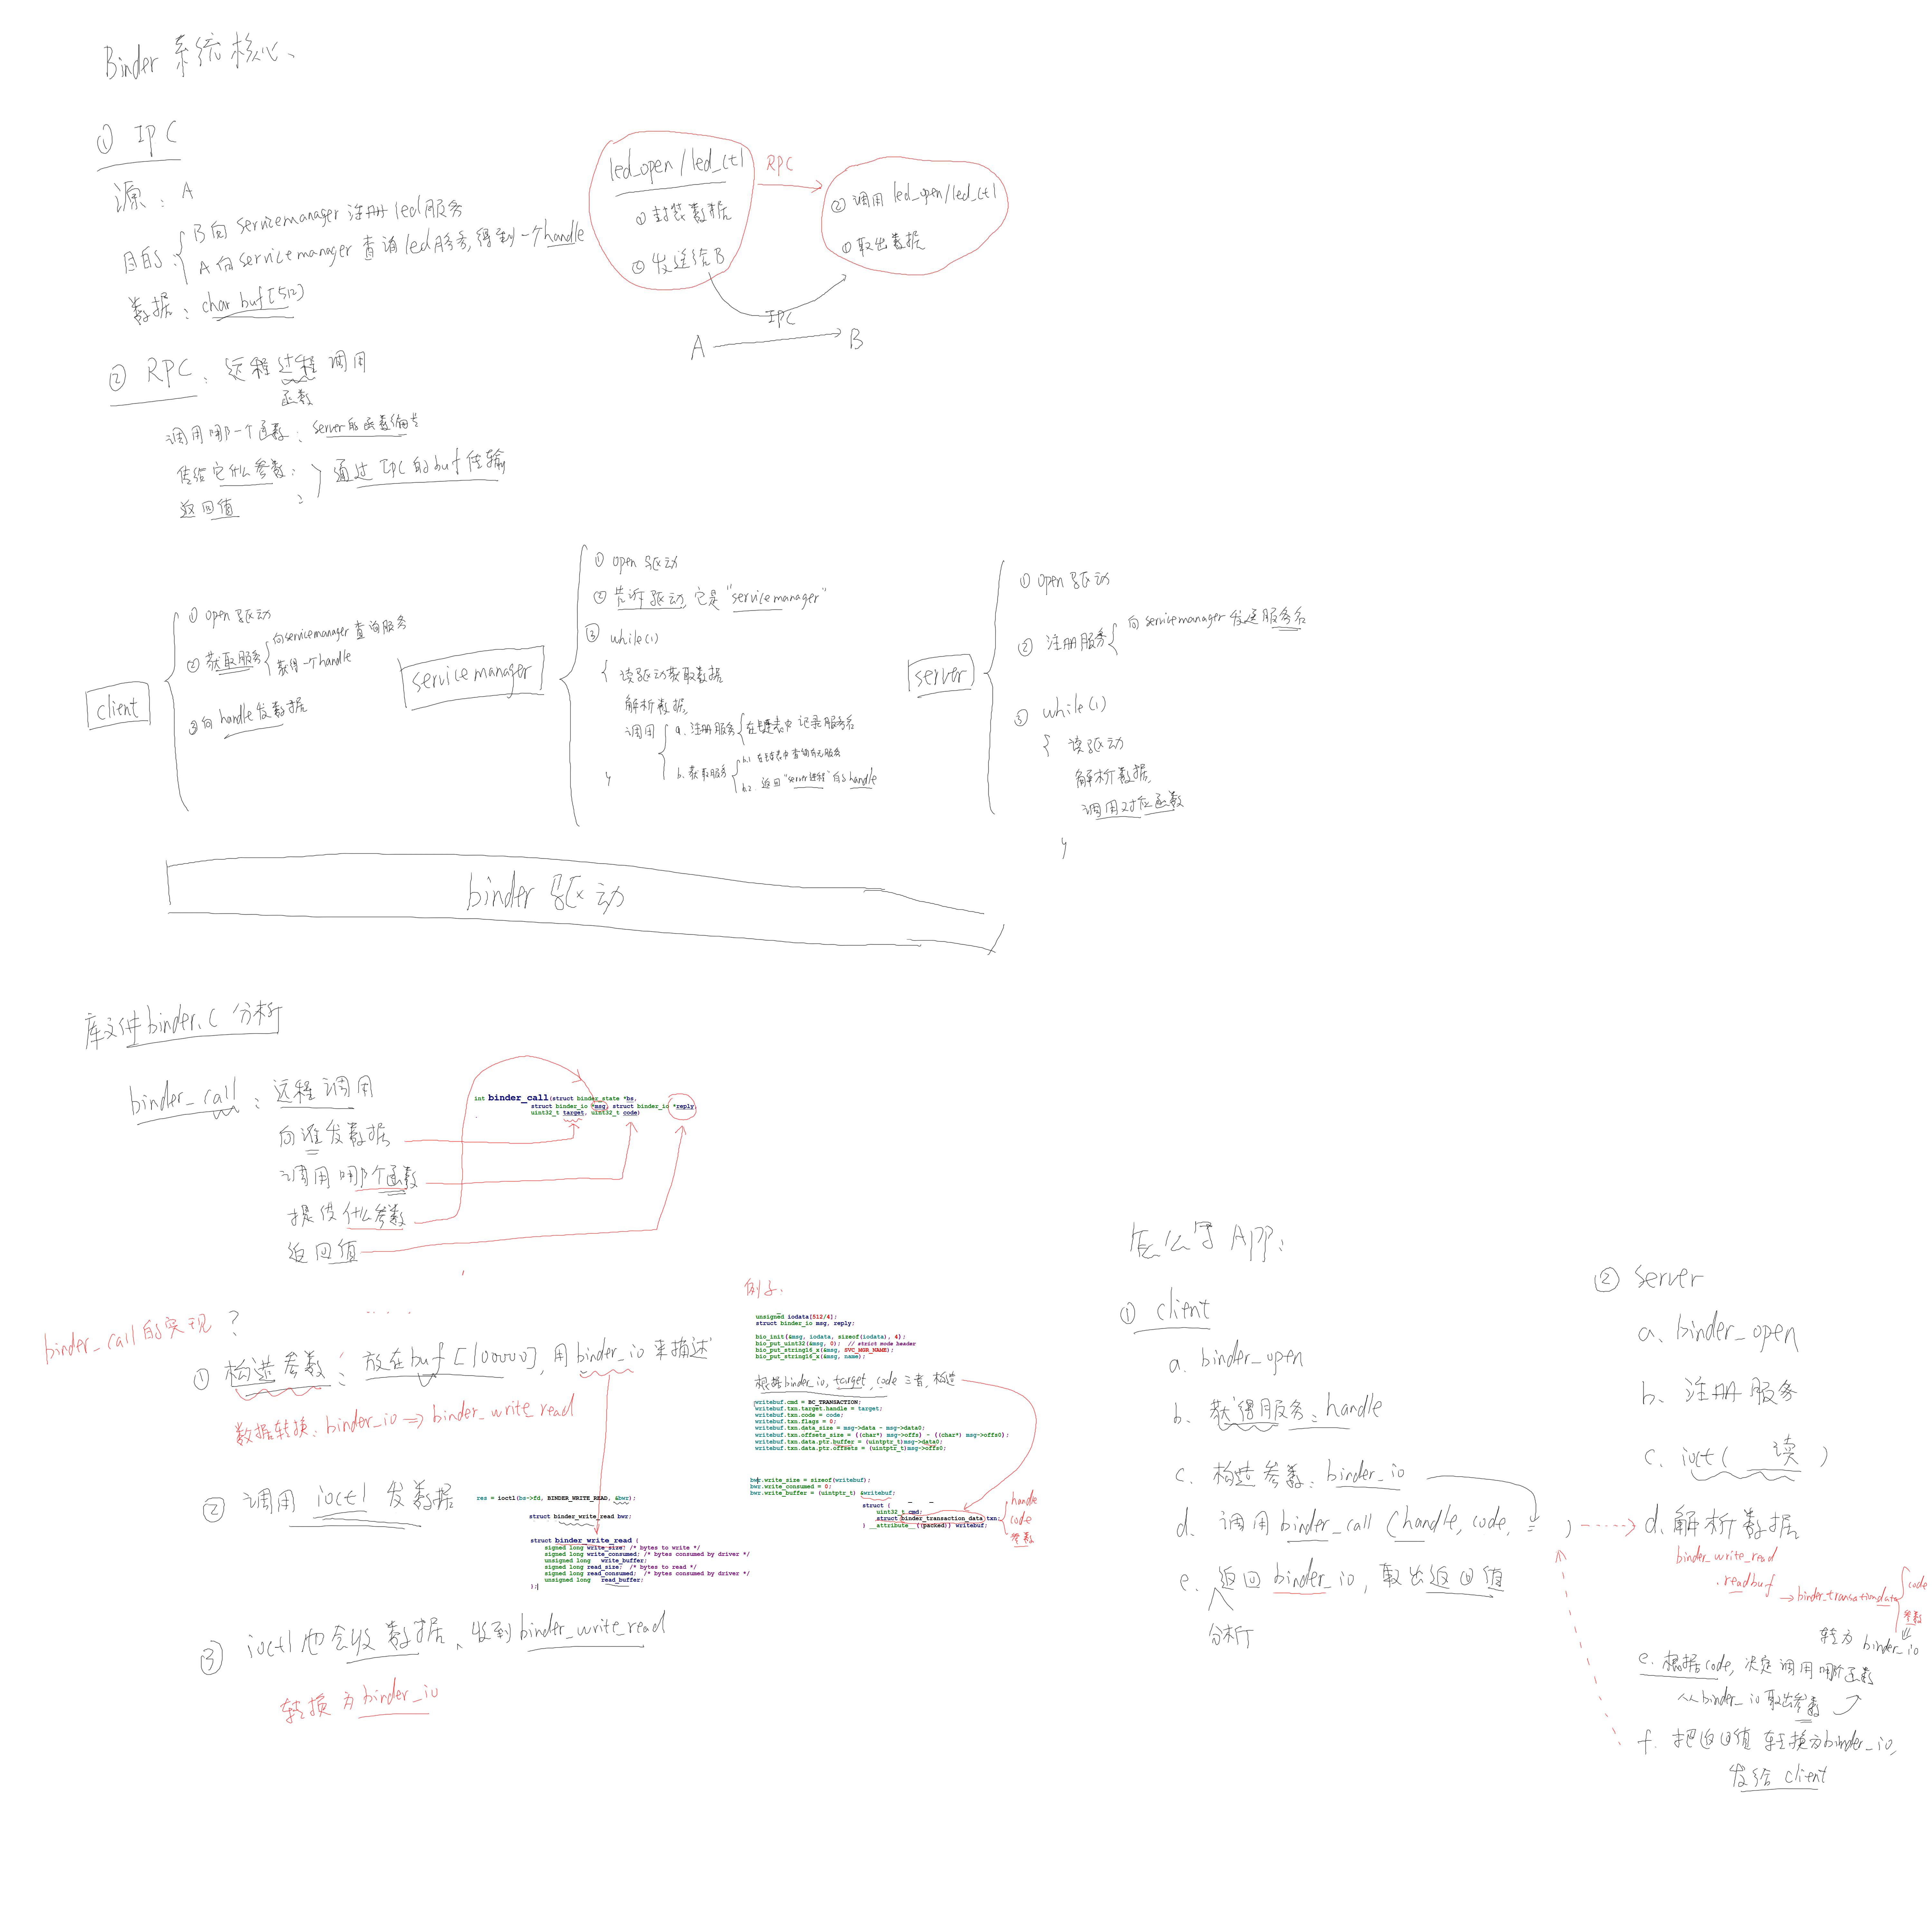 Binder 系统核心、
① IPC
源: A
目的: B向servicemanager注册led服务
A向servicemanager查询led服务,得到一个handle
数据: char buf[512]
led_open/led_ctl
①封装数据
②发送给B
RPC
②调用led_open/led_ctl
①取出数据
IPC
A
B
② RPC: 远程过程调用
函数
调用哪一个函数: server的函数编号
传给它什么参数:
通过IPC的buf传输
返回值 :
client
① open驱动
② 获取服务
向servicemanager查询服务
获得一个handle
③ 向handle发数据
service manager
① open驱动
② 告诉驱动,它是"servicemanager"
③ while(1)
{ 读驱动获取数据
解析数据
调用
a. 注册服务 在链表中记录服务名
b. 获取服务
b.1 在链表中查询有无服务
b.2 返回"server进程"的handle
}
server
① open驱动
② 注册服务 向servicemanager发送服务名
③ while(1)
{ 读驱动
解析数据
调用对应函数
}
binder 驱动
库文件binder.c 分析
binder_call : 远程调用
向谁发数据
调用哪个函数
提供什么参数
返回值
int binder_call(struct binder_state *bs,
struct binder_io *msg, struct binder_io *reply,
uint32_t target, uint32_t code)
binder_call的实现 ?
① 构造参数: 放在buf[10000],用binder_io来描述
数据转换: binder_io => binder_write_read
② 调用 ioctl 发数据
res = ioctl(bs->fd, BINDER_WRITE_READ, &bwr);
struct binder_write_read bwr;
struct binder_write_read {
signed long write_size; /* bytes to write */
signed long write_consumed; /* bytes consumed by driver */
unsigned long write_buffer;
signed long read_size; /* bytes to read */
signed long read_consumed; /* bytes consumed by driver */
unsigned long read_buffer;
};
③ ioctl也会收数据、收到binder_write_read
转换为binder_io
例子.
unsigned iodata[512/4];
struct binder_io msg, reply;
bio_init(&msg, iodata, sizeof(iodata), 4);
bio_put_uint32(&msg, 0); // strict mode header
bio_put_string16_x(&msg, SVC_MGR_NAME);
bio_put_string16_x(&msg, name);
根据binder_io, target, code 三者,构造
writebuf.cmd = BC_TRANSACTION;
writebuf.txn.target.handle = target;
writebuf.txn.code = code;
writebuf.txn.flags = 0;
writebuf.txn.data_size = msg->data - msg->data0;
writebuf.txn.offsets_size = ((char*) msg->offs) - ((char*) msg->offs0);
writebuf.txn.data.ptr.buffer = (uintptr_t)msg->data0;
writebuf.txn.data.ptr.offsets = (uintptr_t)msg->offs0;
bwr.write_size = sizeof(writebuf);
bwr.write_consumed = 0;
bwr.write_buffer = (uintptr_t) &writebuf;
struct {
uint32_t cmd;
struct binder_transaction_data txn;
} __attribute__((packed)) writebuf;
handle
code
参数
怎么写App:
① client
a. binder_open
b. 获得服务: handle
c. 构造参数: binder_io
d. 调用binder_call (handle, code, = )
e. 返回binder_io, 取出返回值
分析
② server
a. binder_open
b. 注册服务
c. ioct( 读 )
d. 解析数据
binder_write_read
.readbuf
→binder_transationdata
code
参数
转为 binder_io
e. 根据code, 决定调用哪个函数
从binder_io取出参数
f. 把返回值转换为binder_io,
发给 client